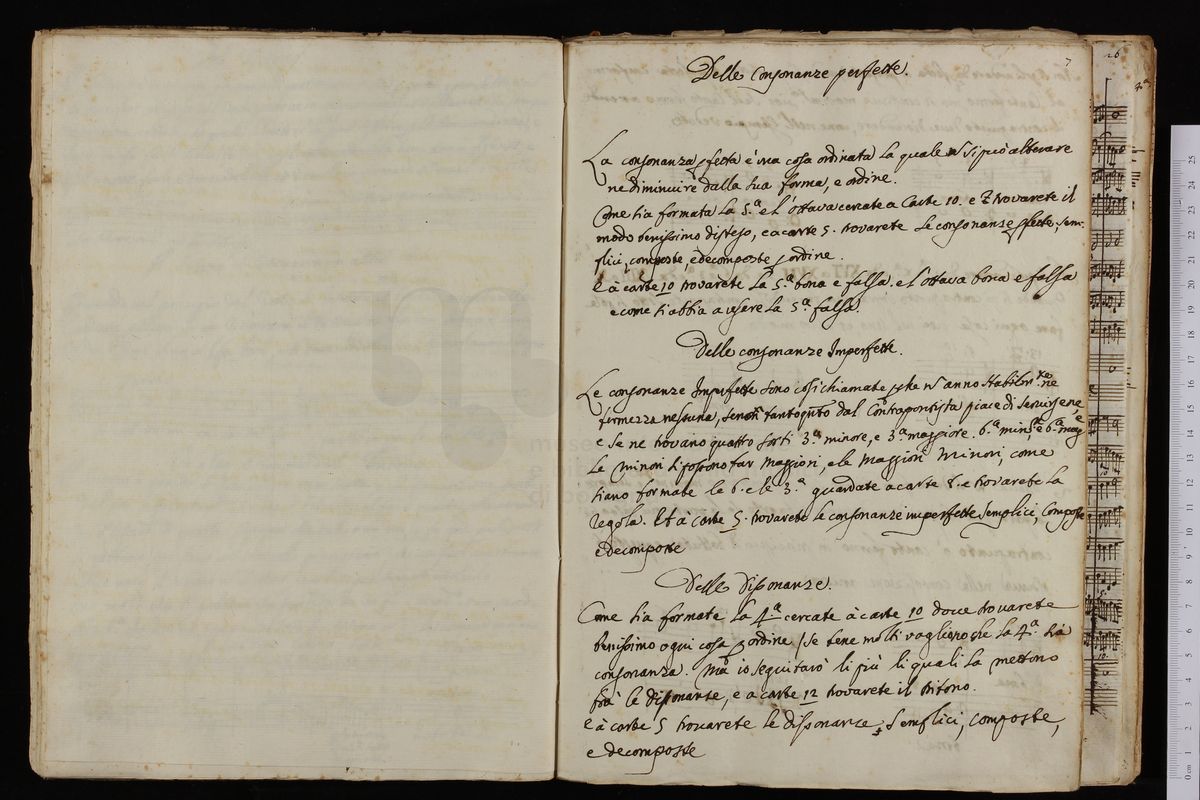 7
Delle Consonanze perfette.
La consonanza pfetta é una cosa ordinata la quale nō si può alterare
ne diminuire dalla sua forma, e ordine.
Come sia formata la 5.ª e l'ottava cercate a Carte 10. e 7 trovarete il
modo benissimo disteso, e a carte 5. trovarete le consonanze pfette, sem-
plici, composte, e decomposte p ordine.
e à carte 10 trovarete la 5.ª bona e falsa. e l'ottava bona e falsa
e come si abbia a usare la 5.ª falsa.
Delle consonanze Imperfette.
Le consonanze Imperfette sono cosi chiamate pche nō anno stabilm.te ne
fermezza nessuna, senon tanto quāto dal Contrapontista piace di servirsene,
e se ne trovano quattro sorti 3.ª minore, e 3.ª maggiore. 6.ª min.re e 6.ª mag.e
Le minori si possono far maggiori, e le maggiori minori, come
siano formate le 6. e le 3.ª guardate a carte 8. e trovarete la
regola. Et à carte 5. trovarete le consonanze imperfette semplici, Composte
e decomposte
Delle dissonanze.
Come sia formata la 4.ª cercate à carte 10 dove trovarete
benissimo ogni cosa p ordine / se bene molti vogliono che la 4.ª sia
consonanza. Ma io seguitarò li più li quali la mettono
frà le dissonanze, e a carte 12 trovarete il tritono.
e à carte 5 trovarete le dissonanze, semplici, composte,
e decomposte
26
0 cm 1 2 3 4 5 6 7 8 9 10 11 12 13 14 15 16 17 18 19 20 21 22 23 24 25